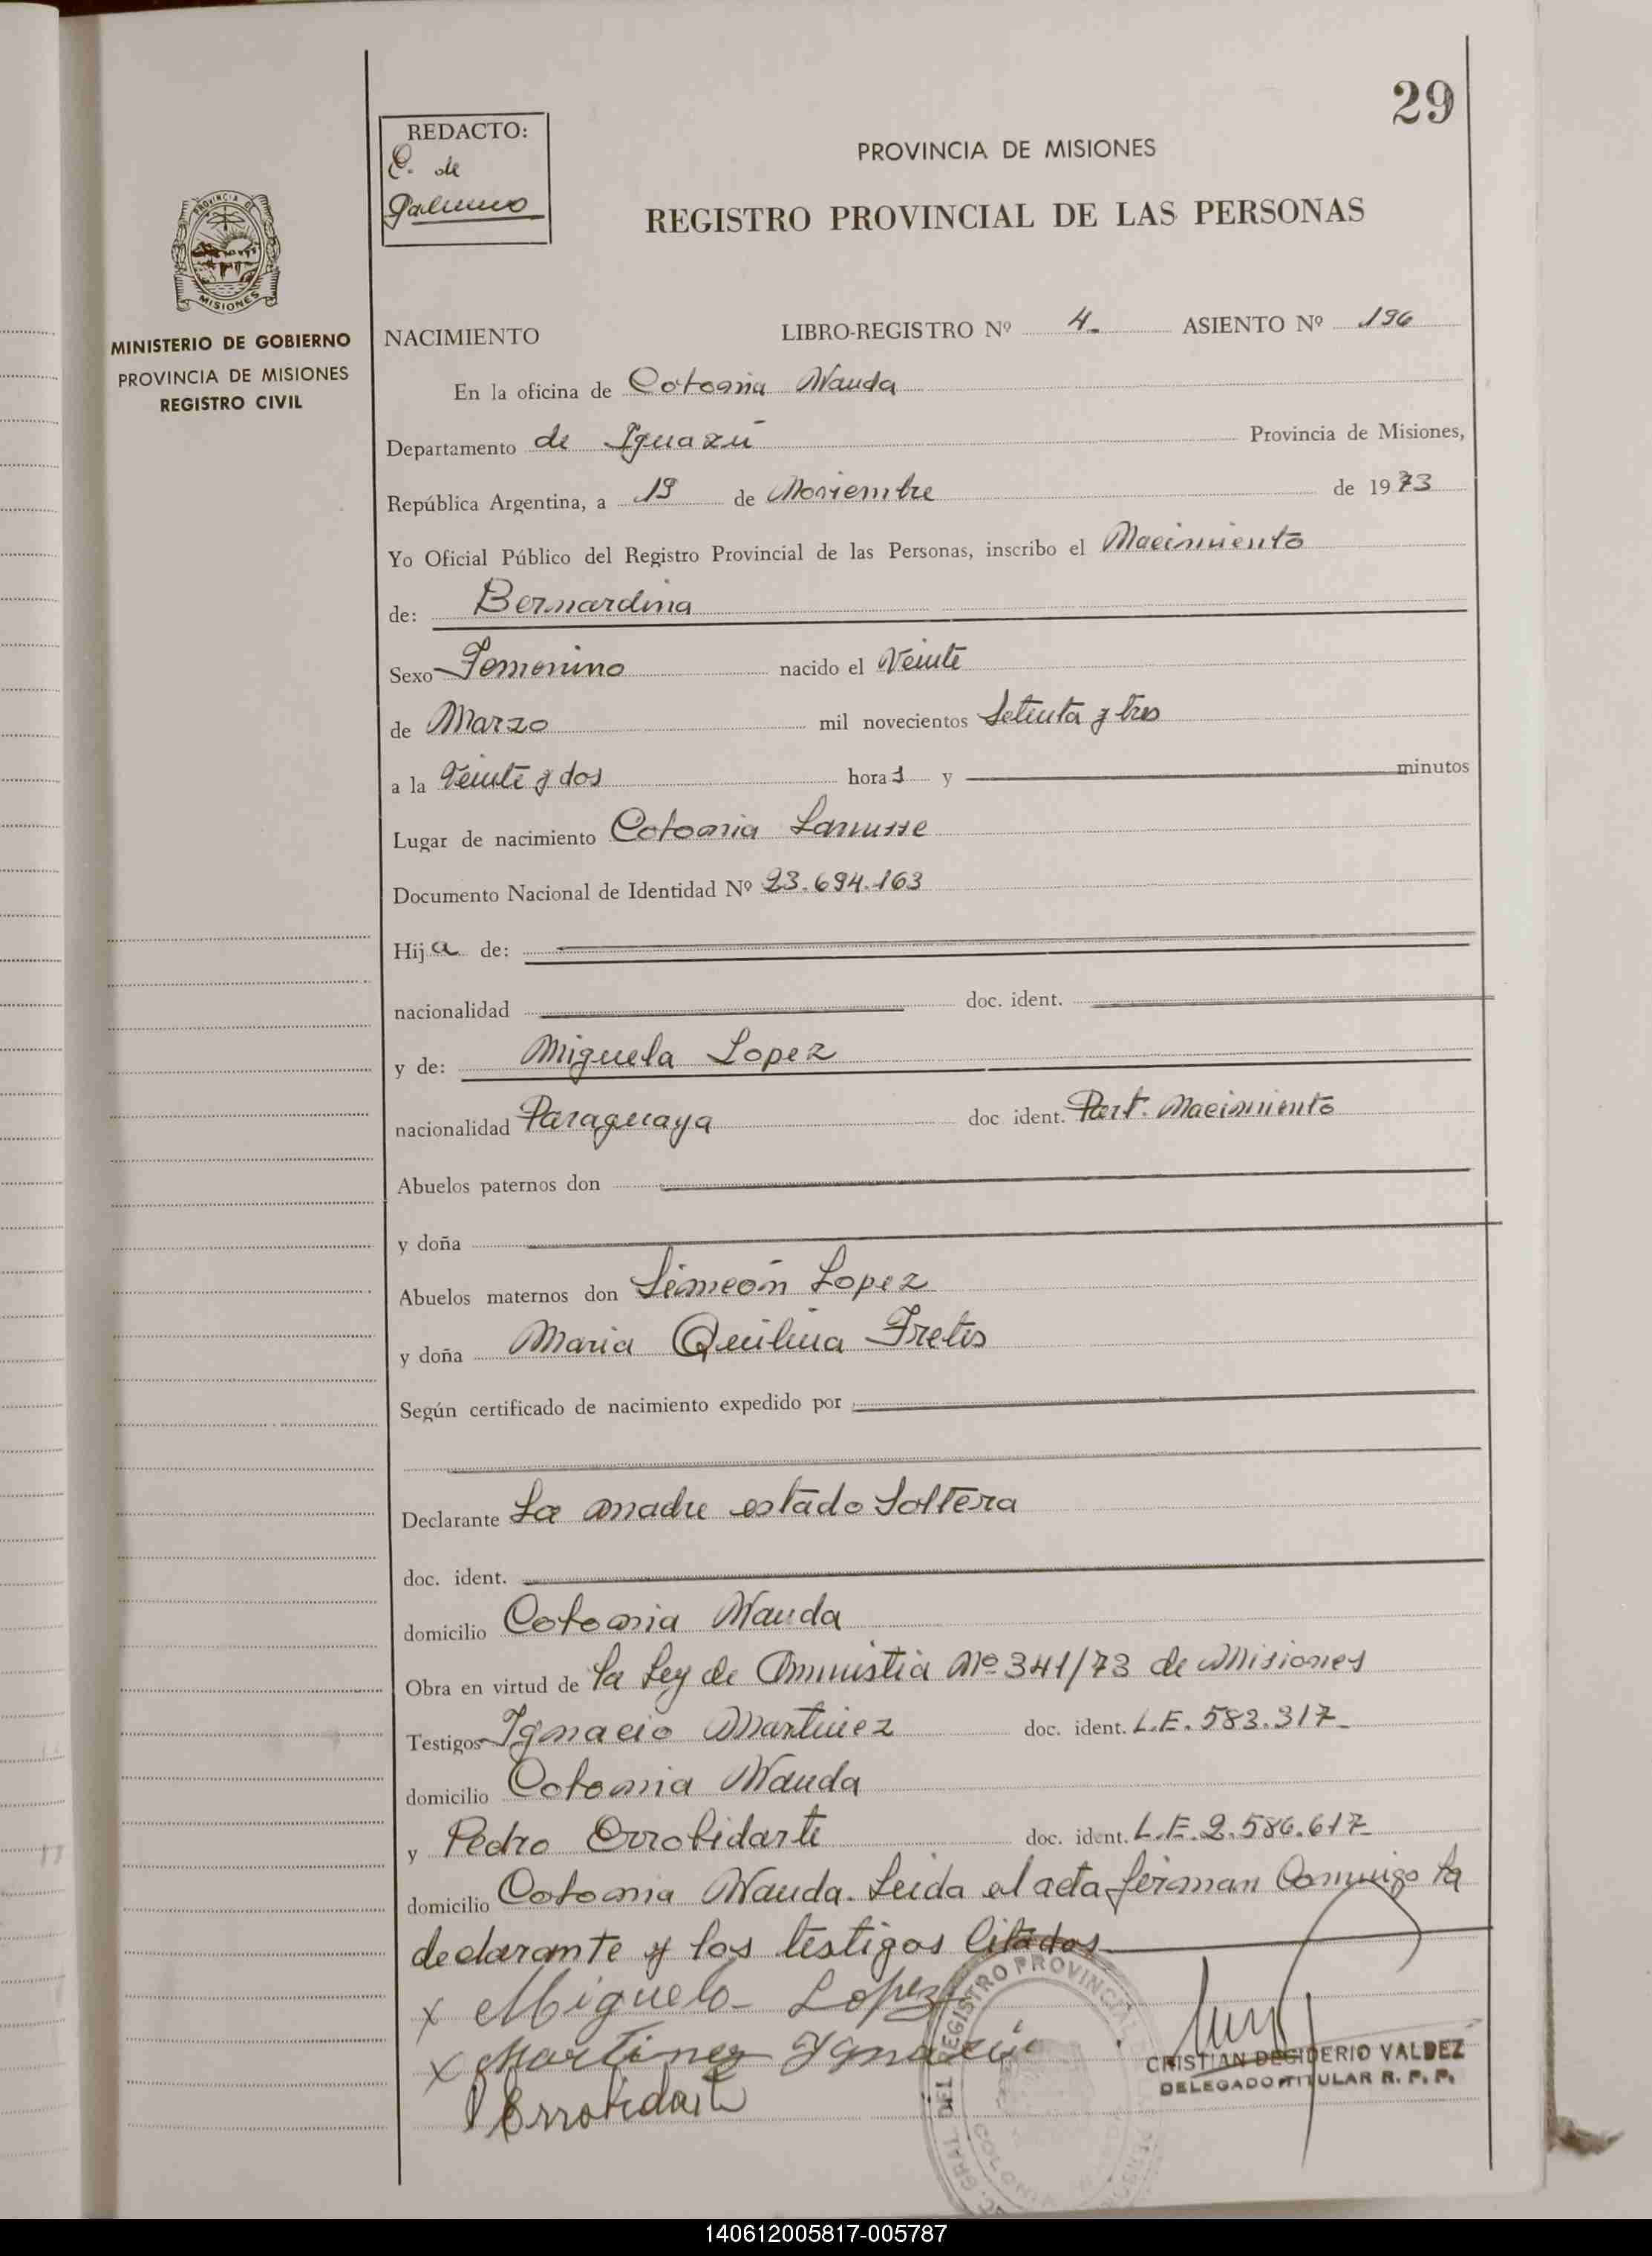 29
REDACTO:
E. de
Galeano
PROVINCIA DE MISIONES
REGISTRO PROVINCIAL DE LAS PERSONAS
PROVINCIA D
MISIONES
MINISTERIO DE GOBIERNO
PROVINCIA DE MISIONES
REGISTRO CIVIL
NACIMIENTO LIBRO-REGISTRO Nº 4 ASIENTO Nº 196
En la oficina de Colonia Wanda
Departamento de Iguazú Provincia de Misiones,
República Argentina, a 19 de Noviembre de 1973
Yo Oficial Público del Registro Provincial de las Personas, inscribo el Nacimiento
de: Bernardina
Sexo Femenino nacido el Veinte
de Marzo mil novecientos Setenta y tres
a la Veinte y dos hora s y minutos
Lugar de nacimiento Colonia Lanusse
Documento Nacional de Identidad Nº 23.694.163
Hij a de:
nacionalidad doc. ident.
y de: Miguela Lopez
nacionalidad Paraguaya doc ident. Part. Nacimiento
Abuelos paternos don
y doña
Abuelos maternos don Simeón Lopez
y doña Maria Quilina Fretes
Según certificado de nacimiento expedido por
Declarante La madre estado Soltera
doc. ident.
domicilio Colonia Wanda
Obra en virtud de la Ley de Amnistia Nº 341/73 de Misiones
Testigos Ignacio Martinez doc. ident. L.E. 583.317
domicilio Colonia Wanda
y Pedro Errobidarte doc. ident. L.E. 2.586.617
domicilio Colonia Wanda. Leida el acta firman Conmigo la
declarante y los testigos Citados
x Miguela Lopez
x Martinez Ygnacio
P Errobidarte
DEL REGISTRO PROVINCIAL
CRISTIAN DESIDERIO VALDEZ
DELEGADO TITULAR R. P. P.
140612005817-005787